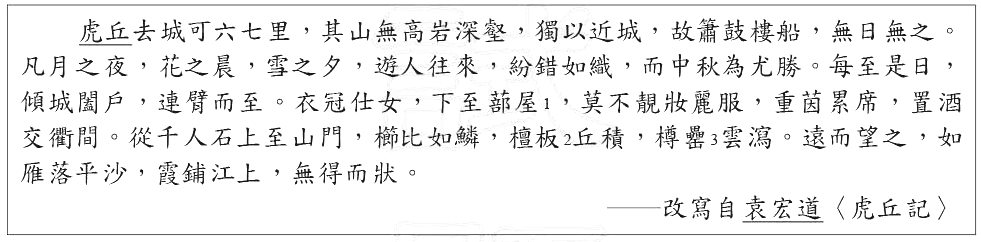 虎丘去城可六七里，其山無高岩深壑，獨以近城，故簫鼓樓船，無日無之。
凡月之夜，花之晨，雪之夕，遊人往來，紛錯如織，而中秋為尤勝。每至是日，
傾城闔戶，連臂而至。衣冠仕女，下至蔀屋1，莫不靚妝麗服，重茵累席，置酒
交衢間。從千人石上至山門，櫛比如鱗，檀板2丘積，樽罍3雲瀉。遠而望之，如
雁落平沙，霞鋪江上，無得而狀。
——改寫自袁宏道〈虎丘記〉